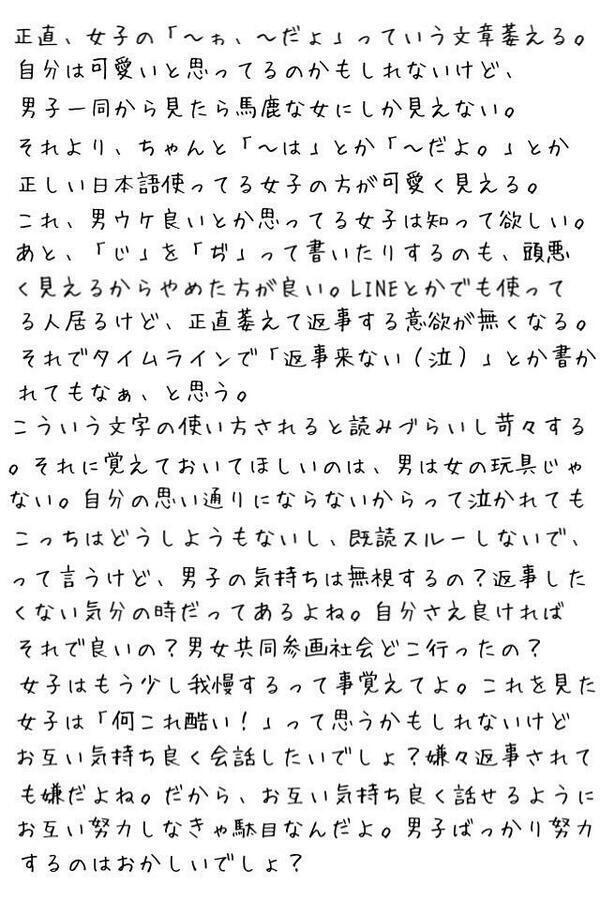 正直、女子の「～ゎ、～だょ」っていう文章萎える。
自分は可愛いと思ってるのかもしれないけど、
男子一同から見たら馬鹿な女にしか見えない。
それより、ちゃんと「～は」とか「～だよ。」とか
正しい日本語使ってる女子の方が可愛く見える。
これ、男ウケ良いとか思ってる女子は知って欲しい。
あと、「じ」を「ぢ」って書いたりするのも、頭悪
く見えるからやめた方が良い。LINEとかでも使って
る人居るけど、正直萎えて返事する意欲が無くなる。
それでタイムラインで「返事来ない（泣）」とか書か
れてもなぁ、と思う。
こういう文字の使い方されると読みづらいし苛々する
。それに覚えておいてほしいのは、男は女の玩具じゃ
ない。自分の思い通りにならないからって泣かれても
こっちはどうしようもないし、既読スルーしないで、
って言うけど、男子の気持ちは無視するの？返事した
くない気分の時だってあるよね。自分さえ良ければ
それで良いの？男女共同参画社会どこ行ったの？
女子はもう少し我慢するって事覚えてよ。これを見た
女子は「何これ酷い！」って思うかもしれないけど
お互い気持ち良く会話したいでしょ？嫌々返事されて
も嫌だよね。だから、お互い気持ち良く話せるように
お互い努力しなきゃ駄目なんだよ。男子ばっかり努力
するのはおかしいでしょ？